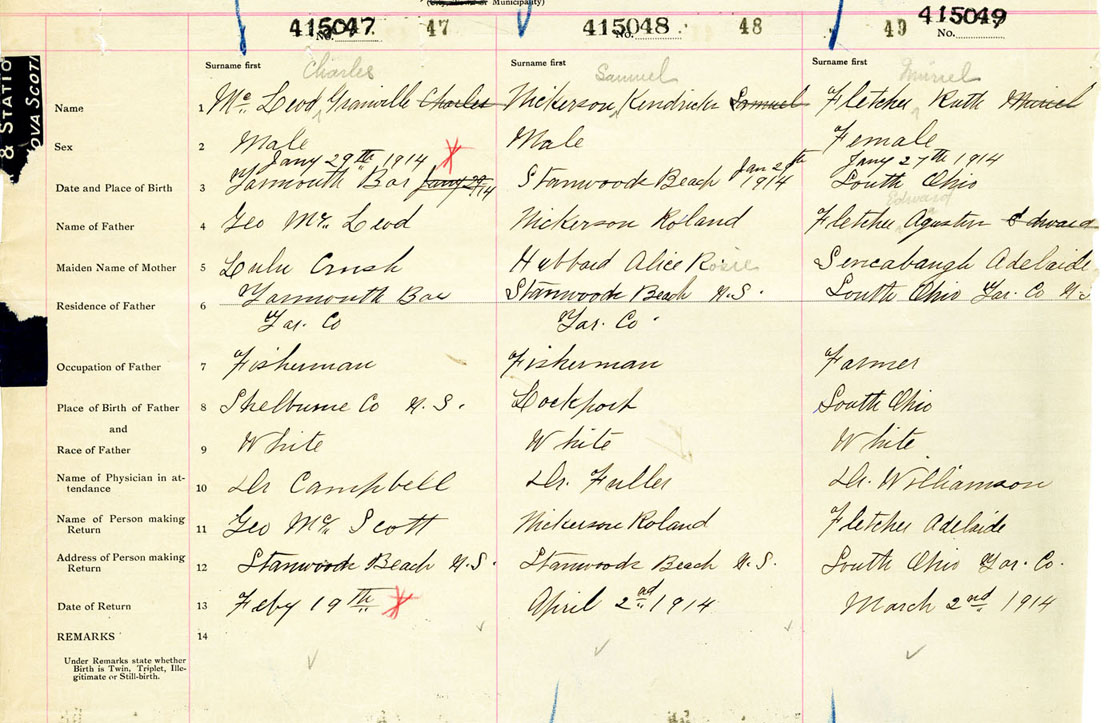 Municipality)
415047 47 415048 48 49 415049
No. No. No.
Surname first Surname first Surname first
Charles Samuel Muriel
Name 1 Mc Leod Granville Charles Nickerson Kendrick Samuel Fletcher Ruth Muriel
Sex 2 Male Male Female
Jany 29th 1914 Jan 2 th Jany 27th 1914
Date and Place of Birth 3 Yarmouth Bar Jany 29 1914 Stanwoods Beach 1914 South Ohio
Edward
Name of Father 4 Geo Mc Leod Nickerson Roland Fletcher Agustin Edward
Maiden Name of Mother 5 Lulu Crush Hubbard Alice Rosie Sencabaugh Adelaide
Residence of Father 6 Yarmouth Bar Stanwoods Beach N.S. South Ohio Yar. Co N.S.
Yar. Co Yar. Co.
Occupation of Father 7 Fisherman Fisherman Farmer
Place of Birth of Father 8 Shelburne Co N.S. Lockport South Ohio
and
Race of Father 9 White White White
Name of Physician in at-
tendance 10 Dr Campbell Dr. Fuller Dr. Williamson
Name of Person making
Return 11 Geo Mc Scott Nickerson Roland Fletcher Adelaide
Address of Person making
Return 12 Stanwoods Beach N.S. Stanwoods Beach N.S. South Ohio Yar. Co.
Date of Return 13 Feby 19th April 2nd 1914 March 2nd 1914
REMARKS 14
Under Remarks state whether
Birth is Twin, Triplet, Ille-
gitimate or Still-birth.
& STATIO
OVA SCOTI